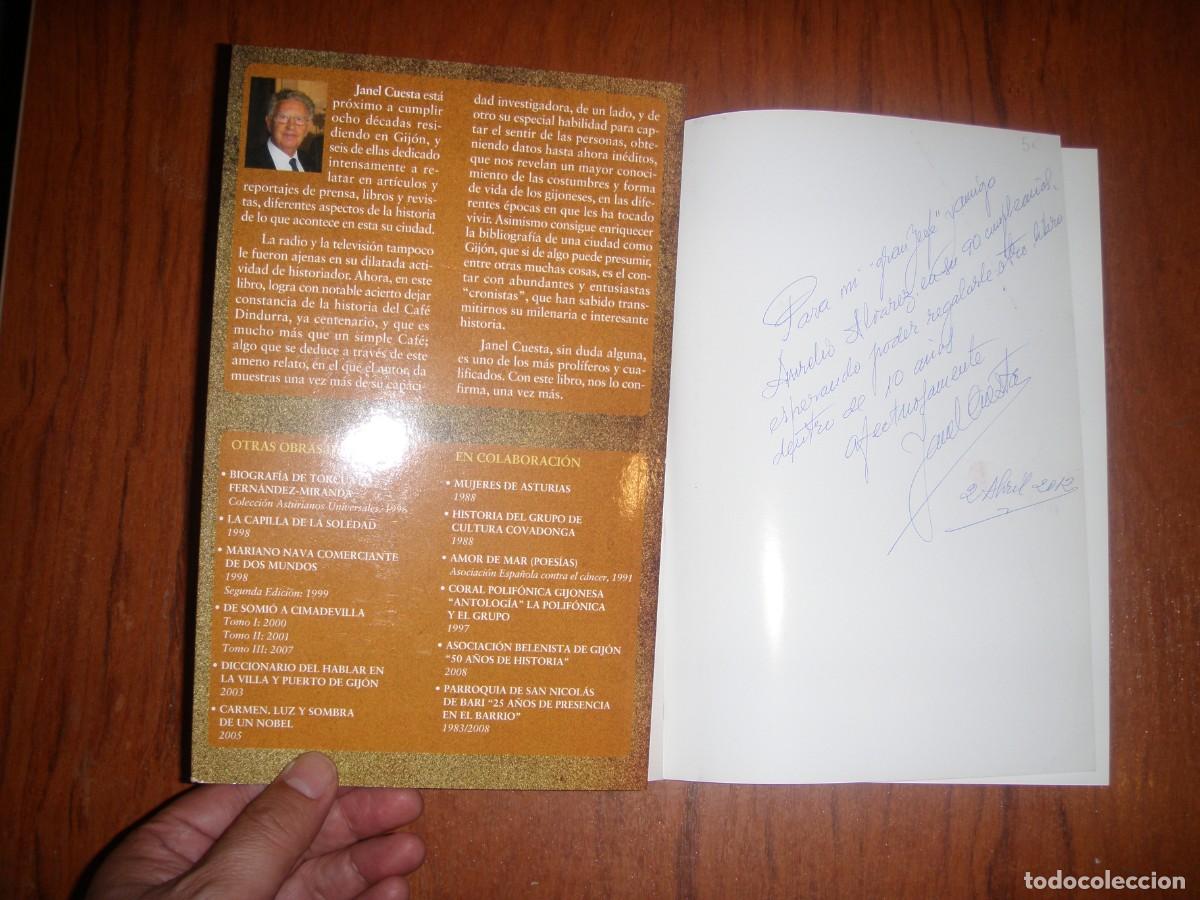 Janel Cuesta está
próximo a cumplir
ocho décadas resi-
diendo en Gijón, y
seis de ellas dedicado
intensamente a re-
latar en artículos y
reportajes de prensa, libros y revis-
tas, diferentes aspectos de la historia
de lo que acontece en esta su ciudad.
La radio y la televisión tampoco
le fueron ajenas en su dilatada acti-
vidad de historiador. Ahora, en este
libro, logra con notable acierto dejar
constancia de la historia del Café
Dindurra, ya centenario, y que es
mucho más que un simple Café;
algo que se deduce a través de este
ameno relato, en el que el autor da
muestras una vez más de su capaci-
dad investigadora, de un lado, y de
otro su especial habilidad para cap-
tar el sentir de las personas, obte-
niendo datos hasta ahora inéditos,
que nos revelan un mayor conoci-
miento de las costumbres y forma
de vida de los gijoneses, en las dife-
rentes épocas en que les ha tocado
vivir. Asimismo consigue enriquecer
la bibliografía de una ciudad como
Gijón, que si de algo puede presumir,
entre otras muchas cosas, es el con-
tar con abundantes y entusiastas
"cronistas", que han sabido trans-
mitirnos su milenaria e interesante
historia.
Janel Cuesta, sin duda alguna,
es uno de los más prolíferos y cua-
lificados. Con este libro, nos lo con-
firma, una vez más.
OTRAS OBRAS
• BIOGRAFÍA DE TORCUATO
FERNÁNDEZ-MIRANDA
Colección Asturianos Universales. 1996
• LA CAPILLA DE LA SOLEDAD
1998
• MARIANO NAVA COMERCIANTE
DE DOS MUNDOS
1998
Segunda Edición: 1999
• DE SOMIÓ A CIMADEVILLA
Tomo I: 2000
Tomo II: 2001
Tomo III: 2007
• DICCIONARIO DEL HABLAR EN
LA VILLA Y PUERTO DE GIJÓN
2003
• CARMEN, LUZ Y SOMBRA
DE UN NOBEL
2005
EN COLABORACIÓN
• MUJERES DE ASTURIAS
1988
• HISTORIA DEL GRUPO DE
CULTURA COVADONGA
1988
• AMOR DE MAR (POESÍAS)
Asociación Española contra el cáncer, 1991
• CORAL POLIFÓNICA GIJONESA
"ANTOLOGÍA" LA POLIFÓNICA
Y EL GRUPO
1997
• ASOCIACIÓN BELENISTA DE GIJÓN
"50 AÑOS DE HISTORIA"
2008
• PARROQUIA DE SAN NICOLÁS
DE BARI "25 AÑOS DE PRESENCIA
EN EL BARRIO"
1983/2008
Para mi "gran Jefe" y amigo
Aurelio Alvarez, en su 90 cumpleaños,
esperando poder regalarle otro libro
dentro de 10 años
afectuosamente
Janel Cuesta
2-Abril-2012
todocoleccion